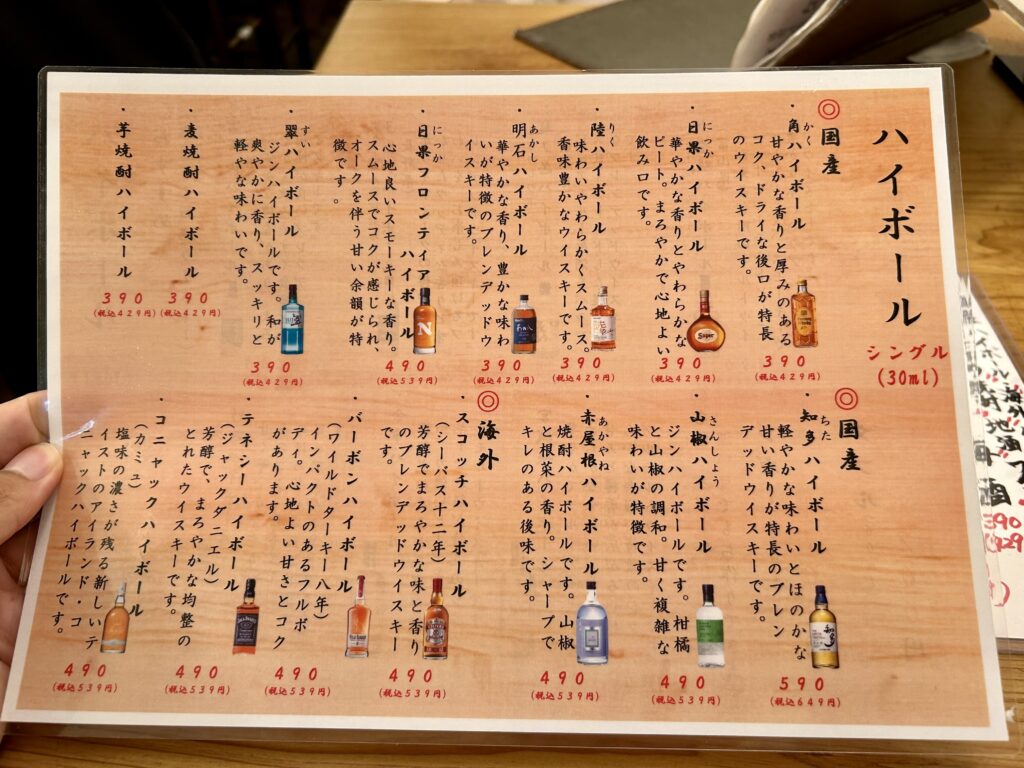 ハイボール
シングル
(30ml)
◎国産
・角ハイボール
かく
甘やかな香りと厚みのある
コク、ドライな後口が特長
のウイスキーです。
390
(税込429円)
・日果ハイボール
にっか
華やかな香りとやわらかな
ピート。まろやかで心地よい
飲み口です。
390
(税込429円)
・陸ハイボール
りく
味わいやわらかくスムース。
香味豊かなウイスキーです。
390
(税込429円)
・明石ハイボール
あかし
華やかな香り、豊かな味わ
いが特徴のブレンデッドウ
イスキーです。
390
(税込429円)
・日果フロンティア
にっか
ハイボール
心地良いスモーキーな香り。
スムースでコクが感じられ、
オークを伴う甘い余韻が特
徴です。
490
(税込539円)
・翠ハイボール
すい
ジンハイボールです。和が
爽やかに香り、スッキリと
軽やかな味わいです。
390
(税込429円)
・麦焼酎ハイボール
390
(税込429円)
・芋焼酎ハイボール
390
(税込429円)
◎国産
・知多ハイボール
ちた
軽やかな味わいとほのかな
甘い香りが特長のブレン
デッドウイスキーです。
590
(税込649円)
・山椒ハイボール
さんしょう
ジンハイボールです。柑橘
と山椒の調和。甘く複雑な
味わいが特徴です。
490
(税込539円)
・赤屋根ハイボール
あかやね
焼酎ハイボールです。山椒
と根菜の香り。シャープで
キレのある後味です。
490
(税込539円)
◎海外
・スコッチハイボール
(シーバス十二年)
芳醇でまろやかな味と香り
のブレンデッドウイスキー
です。
490
(税込539円)
・バーボンハイボール
(ワイルドターキー八年)
インパクトのあるフルボ
ディ。心地よい甘さとコク
があります。
490
(税込539円)
・テネシーハイボール
(ジャックダニエル)
芳醇で、まろやかな均整の
とれたウイスキーです。
490
(税込539円)
・コニャックハイボール
(カミュ)
塩味の濃さが残る新しいテ
イストのアイランド・コ
ニャックハイボールです。
490
(税込539円)